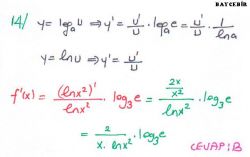 BAYCEBİR
14/ y = logₐu ⇒ y' = u'/u · logₐe = u'/u · 1/lna
y = lnu ⇒ y' = u'/u
f'(x) = (lnx²)'/lnx² · log₃e = (2x/x²)/lnx² · log₃e
= 2/(x · lnx²) · log₃e
CEVAP: B